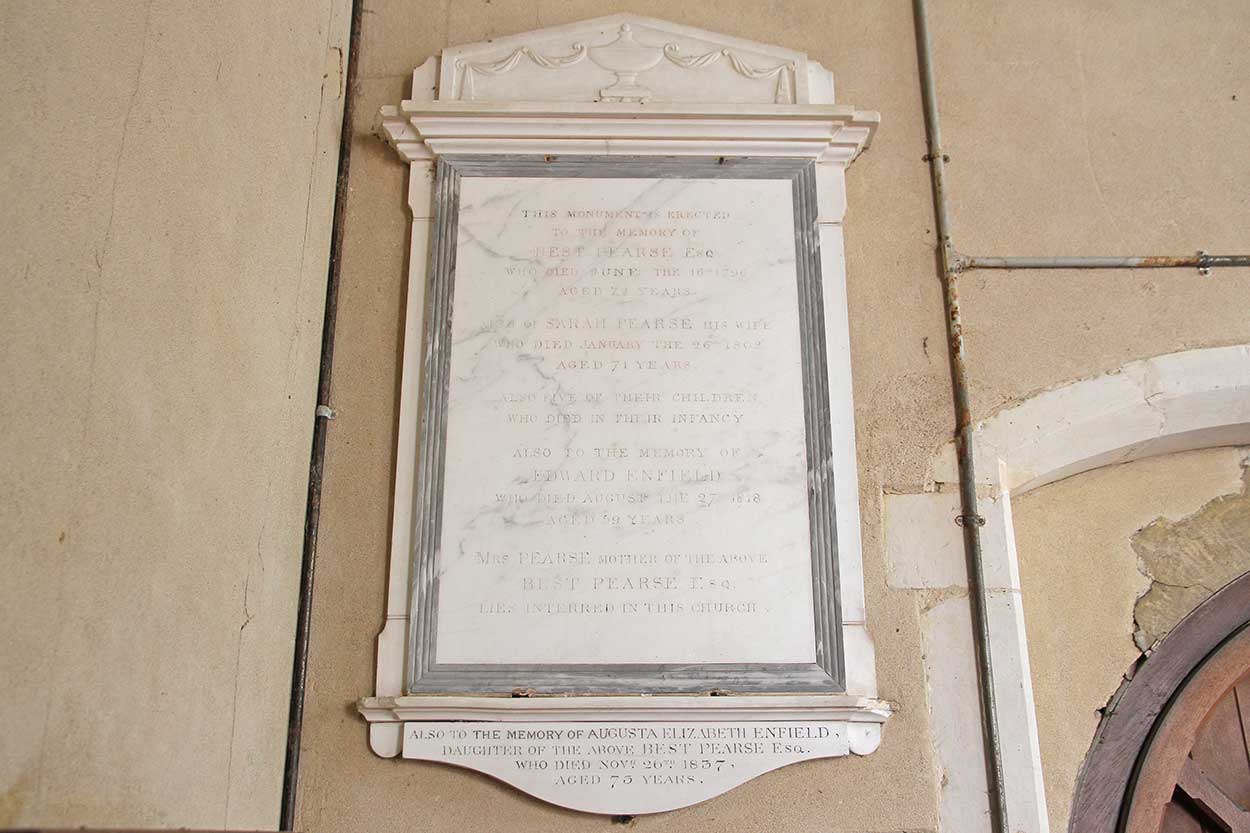 THIS MONUMENT IS ERECTED
TO THE MEMORY OF
BEST PEARSE ESQ.
WHO DIED JUNE THE 16TH 1796
AGED YEARS
ALSO OF SARAH PEARSE HIS WIFE
WHO DIED JANUARY THE 26TH 1802
AGED 71 YEARS
ALSO FIVE OF THEIR CHILDREN
WHO DIED IN THEIR INFANCY
ALSO TO THE MEMORY OF
EDWARD ENFIELD
WHO DIED AUGUST THE 27
AGED 59 YEARS
MRS PEARSE MOTHER OF THE ABOVE
BEST PEARSE ESQ.
LIES INTERRED IN THIS CHURCH.
ALSO TO THE MEMORY OF AUGUSTA ELIZABETH ENFIELD,
DAUGHTER OF THE ABOVE BEST PEARSE ESQ.
WHO DIED NOVR. 26TH 1837,
AGED 73 YEARS.